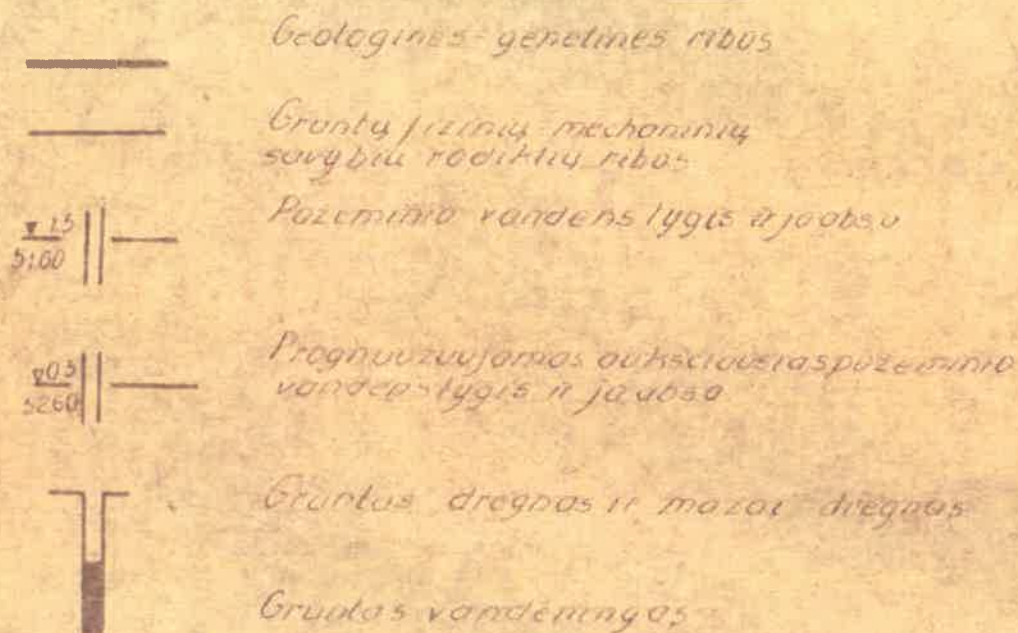 Geologinės-genetinės ribos
Gruntų fizinių mechaninių
savybių rodiklių ribos
▼ 1.5
51.60
Požeminio vandens lygis ir jo abs.
▽ 0.3
52.60
Prognozuojamas aukščiausias požeminio
vandens lygis ir jo abs.
Gruntas drėgnas ir mažai drėgnas
Gruntas vandeningas